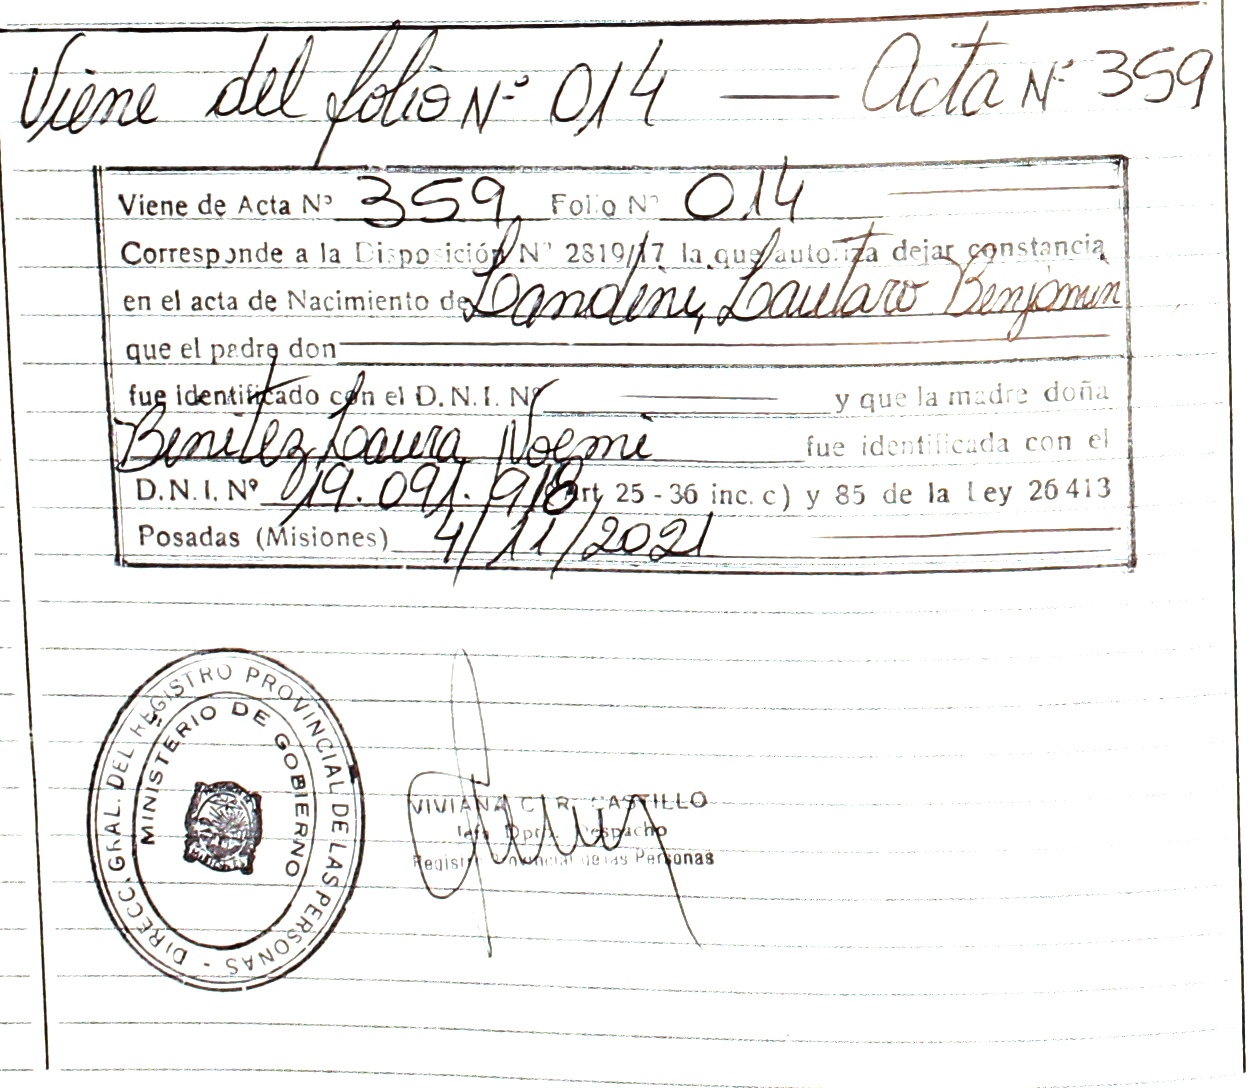 Viene del folio Nº 014 — Acta Nº 359
Viene de Acta Nº 359 Folio Nº 014
Corresponde a la Disposición Nº 2819/17 la que autoriza dejar constancia
en el acta de Nacimiento de Landini, Lautaro Benjamin
que el padre don
fue identificado con el D.N.I. Nº — y que la madre doña
Benitez, Laura Noemi fue identificada con el
D.N.I. Nº 19.091.918 (Art. 25 - 36 inc. c) y 85 de la Ley 26413
Posadas (Misiones) 4/11/2021
DIRECC. GRAL. DEL REGISTRO PROVINCIAL DE LAS PERSONAS -
MINISTERIO DE GOBIERNO
VIVIANA C. R. CASTILLO
Jefa Dpto. Despacho
Registro Provincial de las Personas